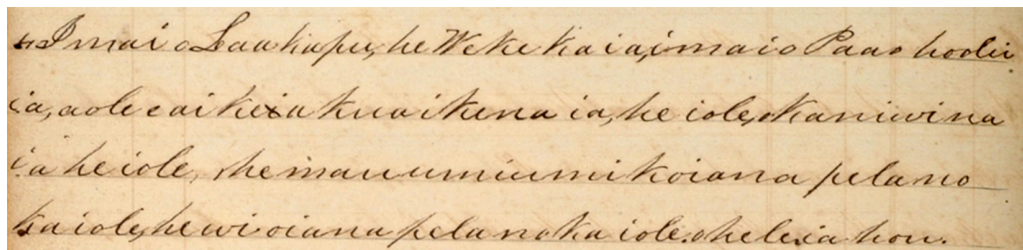 4 I mai o Laakapu, he Weke ka ia, i mai o Paao hoolei
ia, aole e aikeia kuaikena ia, he iole, o kaniwi na
ia he iole, he mau umiumi koiana pela no
ka iole, he wi oiana pela no ka iole. o helei ia hou.